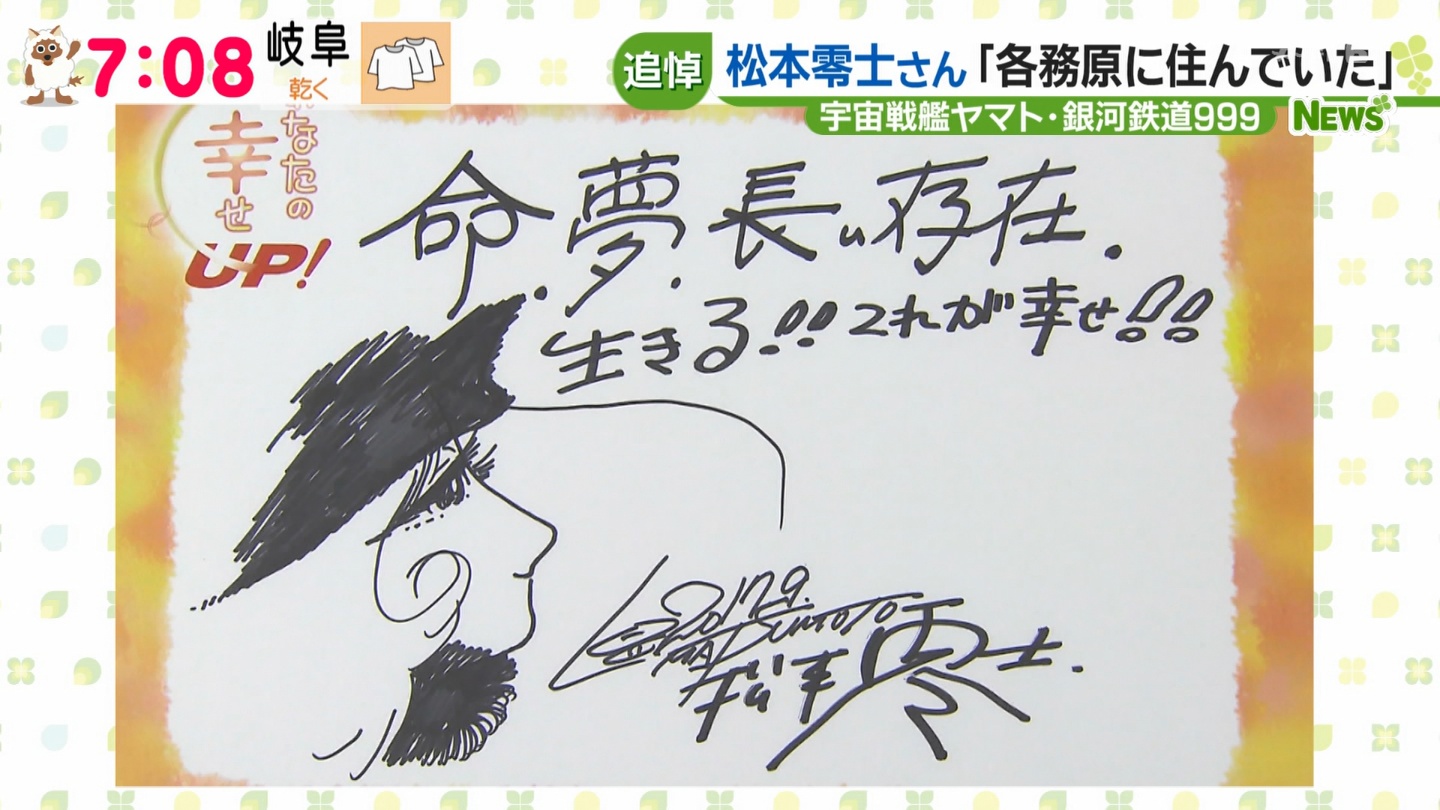 7:08
岐阜
乾く
追悼
松本零士さん「各務原に住んでいた」
宇宙戦艦ヤマト・銀河鉄道999
NEWS
なたの
幸せ
UP!
命.夢.長い存在.
生きる!!これが幸せ!!
2017.9.
松本零士.